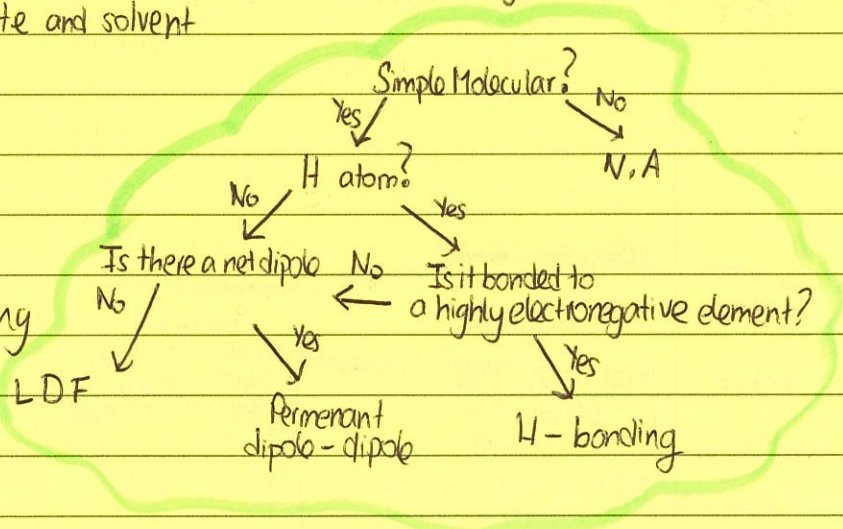 te and solvent
Simple Molecular?
Yes
No
H atom?
N.A
No
Yes
Is there a net dipole
No
Is it bonded to
a highly electronegative element?
No
ng
Yes
Yes
LDF
Permenant
dipole - dipole
H - bonding